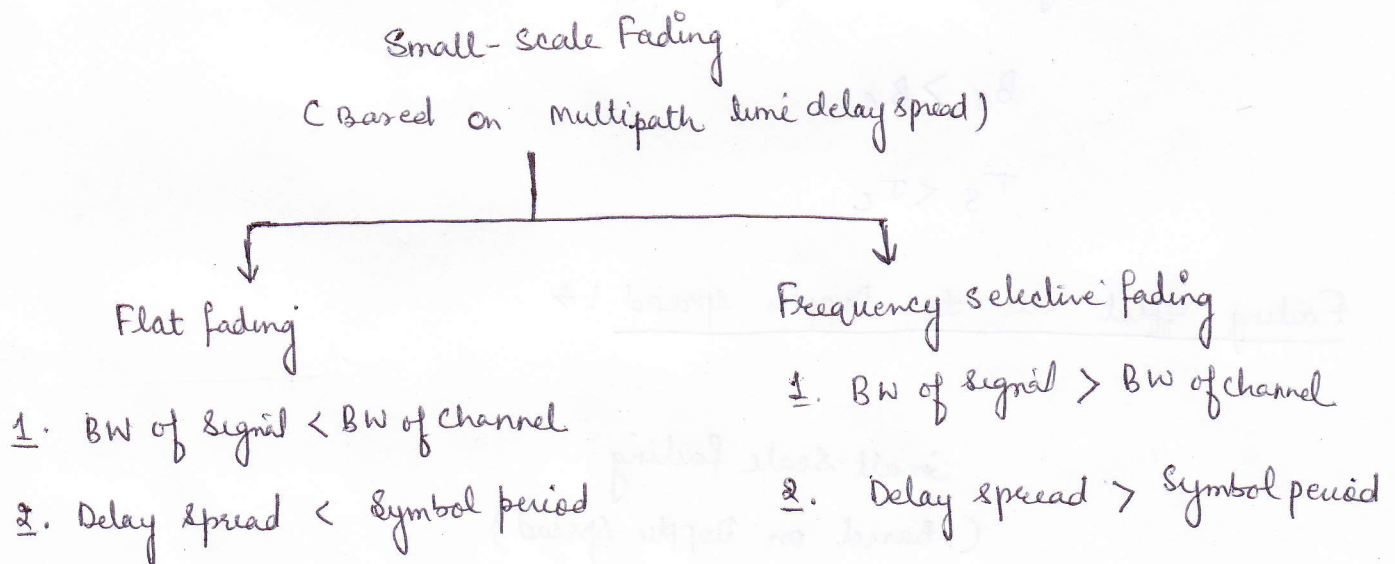 Small-Scale Fading
(Based on Multipath time delay spread)
Flat fading
1. BW of Signal < BW of Channel
2. Delay spread < Symbol period
Frequency selective fading
1. BW of signal > BW of channel
2. Delay spread > Symbol period